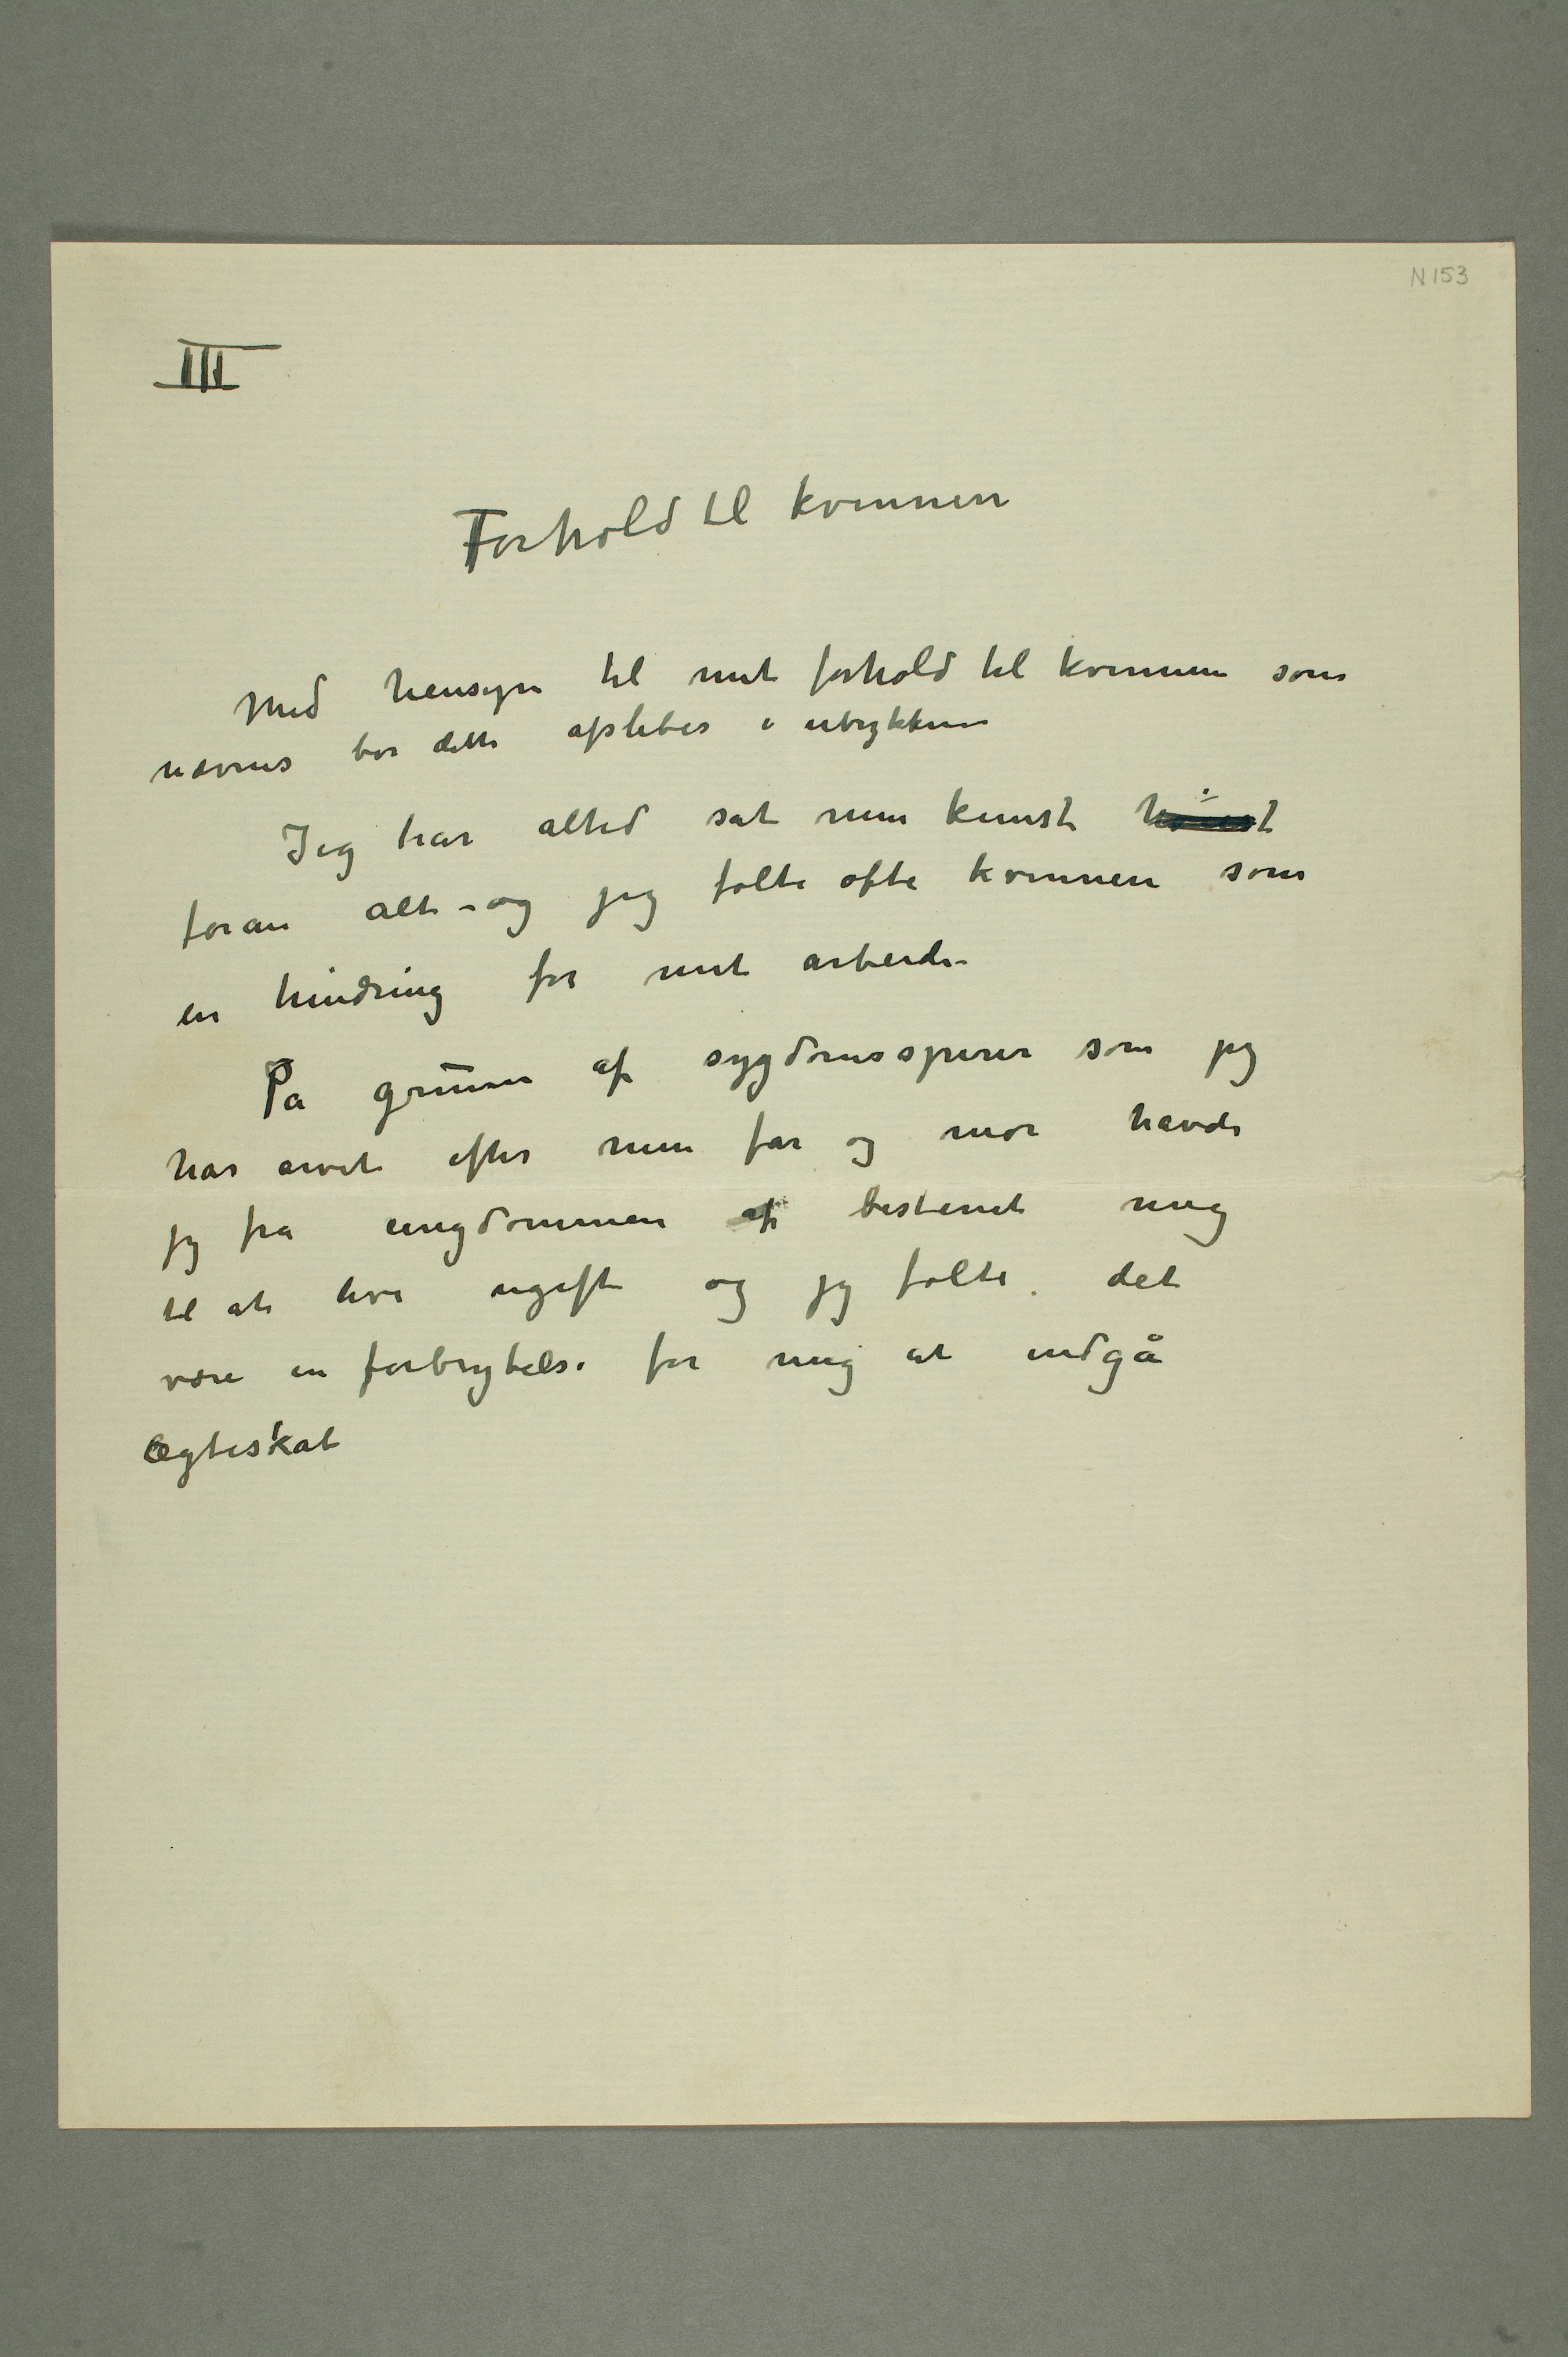 N 153
III
Forhold til kvinnen
Med hensyn til mit forhold til kvinnen som
nævnes bør dette afslibes i utrykkene
Jeg har altid sat min kunst
foran alt – og jeg følte ofte kvinnen som
en hindring for mit arbeide –
På grunn af sygdomsspirer som jeg
har arvet efter min far og mor havde
jeg fra ungdommen af bestemt mig
til at leve ugift og jeg følte det
være en forbrytelse for mig at indgå
Ægteskab